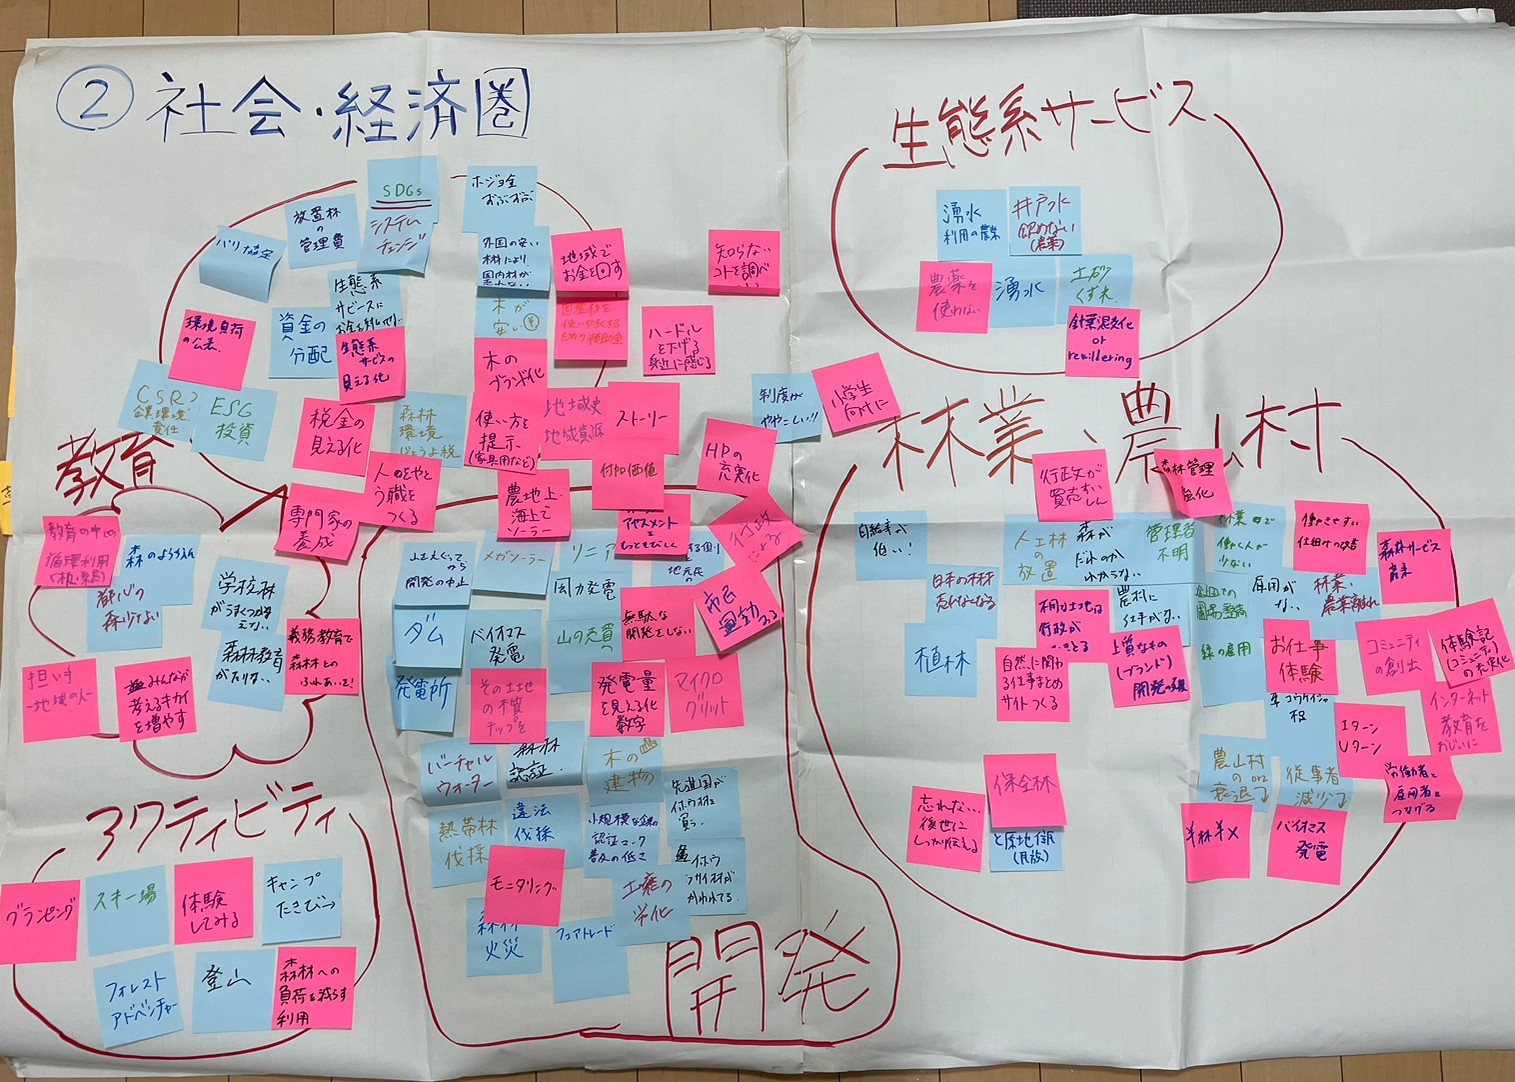 ② 社会・経済圏
SDGs
システム
チェンジ
ホジョ金
ずぶずぶ
放置林
の
管理費
パリ協定
外国の安い
木材により
国内材が
売れない
地域で
お金を回す
知らない
コトを調べ
生態系
サービスに
環境負荷
の公表
資金の
分配
生態系
サービスの
見える化
木が
安い
国産材を
使いやすくする
ための補助金
ハードル
を下げる
身近に感じる
木の
ブランド化
CSR
企業環境
責任
ESG
投資
税金の
見える化
森林
環境
じょうよ税
使い方を
提示
(家具用など)
地域史
地域資源
ストーリー
制度が
ややこしい!!
小学生
向けに
付加価値
HPの
充実化
専門家の
養成
人のやと
う職を
つくる
農地上・
海上で
ソーラー
教育
教育の中の
循環利用
(机・楽器)
森のようちえん
都心の
森少ない
学校林
がうまくつかえ
えない
義務教育で
森林との
ふれあいを!
森林教育
がたりない
担い手
―地域の人
みんなが
考えるキカイ
を増やす
アクティビティ
グランピング
スキー場
体験
してみる
キャンプ
たきび
フォレスト
アドベンチャー
登山
森林への
負荷を減らす
利用
開発
開発の中止
メガソーラー
リニア
アセスメント
を
もっときびしく
行政
による
ダム
バイオマス
発電
風力発電
山の売買
無駄な
開発をしない
市民
運動
発電所
その土地
の木質
チップを
発電量
を見える化
数字
マイクロ
グリット
バーチャル
ウォーター
森林
認証
木の
建物
先進国が
イホウ材を
買う
熱帯林
伐採
違法
伐採
小規模な林の
認証マーク
普及の低さ
イホウ
バサイ材が
かわれてる
モニタリング
土壌の
劣化
森林
火災
フェアトレード
生態系サービス
湧水
利用の農業
井戸水
飲めない
(農薬)
農薬を
使わない
湧水
土砂
くずれ
針葉混交化
or
rewildering
林業、農山村
行政が
買売すいしん
森林管理
強化
自給率が
低い!
人工林
の
放置
森が
だれのか
わからない
管理者
不明
林業
働く人が
少ない
働きやすい
仕組みの改善
森林サービス
産業
日本の木材
売れなくなる
農村に
仕事がない
雇用が
ない
林業、
農業離れ
植林
自然に関わ
る仕事まとめ
サイトつくる
上質なもの
(ブランド)
開発
緑の雇用
お仕事
体験
コミュニティ
の創出
体験記
(コミュニティ)
の充実化
コウケイシャ
不足
Iターン
Uターン
インターネット
教育を
農山村
の
衰退
従事者
減少
労働者と
雇用者を
つなげる
忘れない、
後世に
しっかり伝える
保全林
半林半X
バイオマス
発電